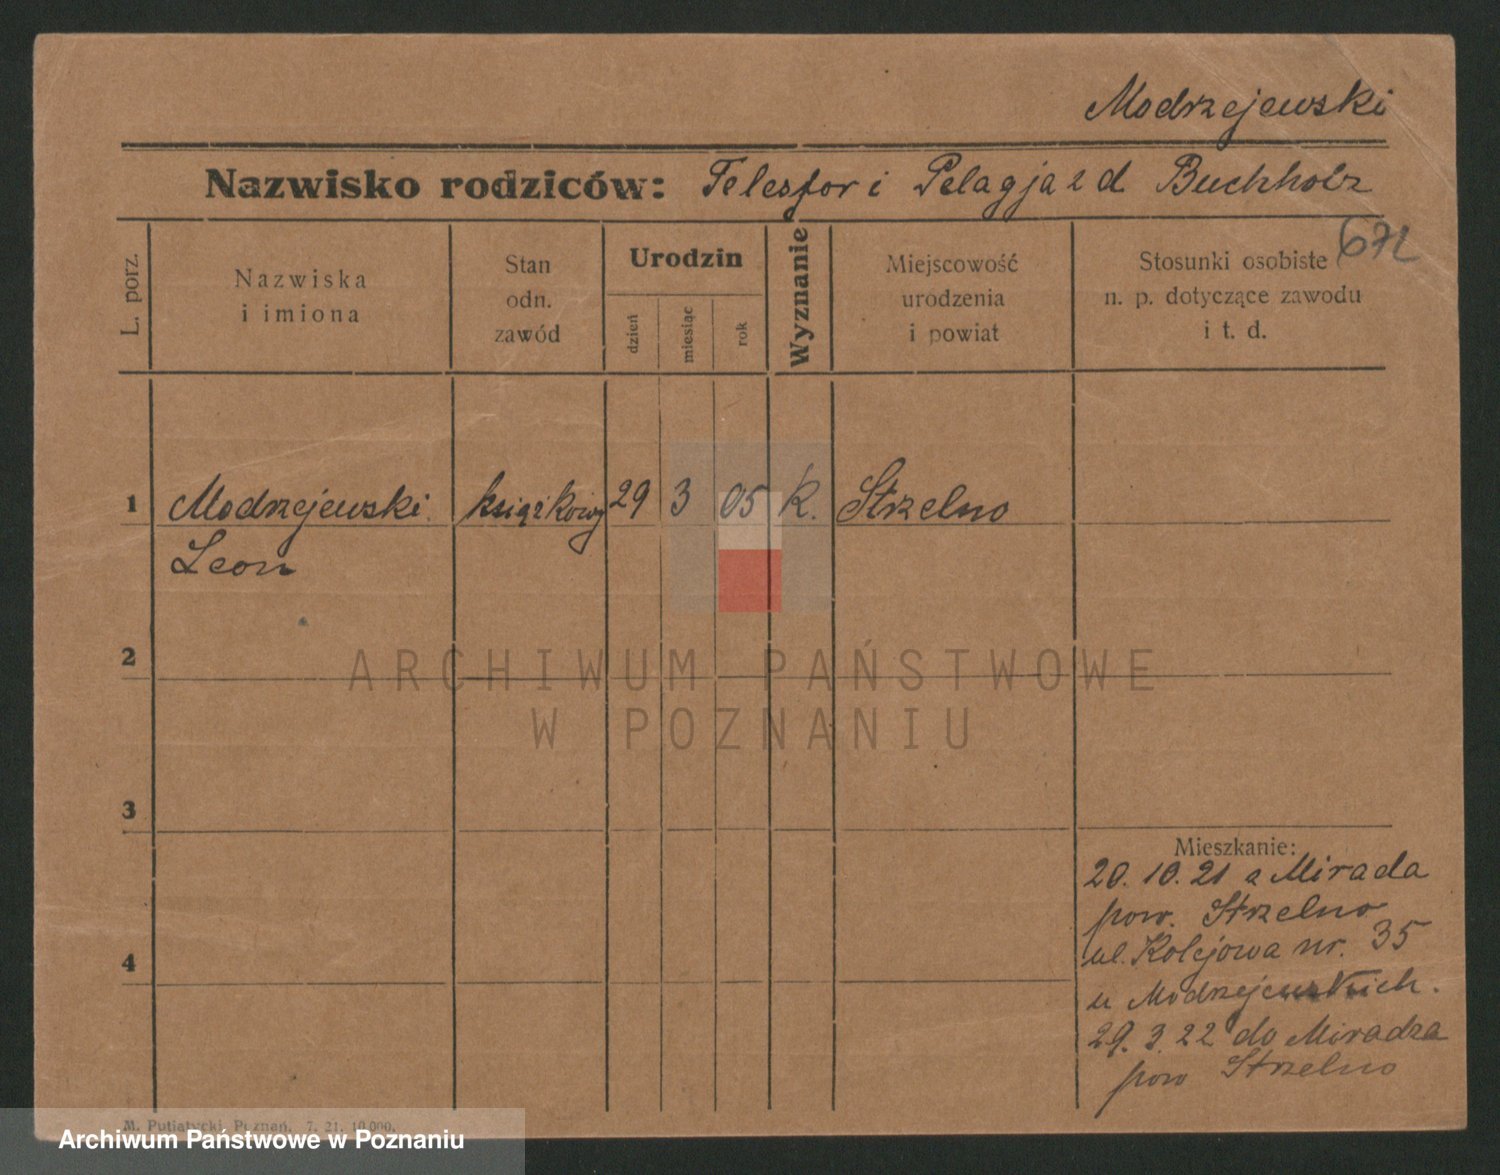 Modrzejewski
Nazwisko rodziców: Telesfor i Pelagja z d Buchholz
672
L. porz.
Nazwiska
i imiona
Stan
odn.
zawód
Urodzin
dzień
miesiąc
rok
Wyznanie
Miejscowość
urodzenia
i powiat
Stosunki osobiste
n. p. dotyczące zawodu
i t. d.
1 Modrzejewski książkowy 29 3 05 K. Strzelno
Leon
2
ARCHIWUM PAŃSTWOWE
W POZNANIU
3
Mieszkanie:
20. 10. 21 z Mirada
pow. Strzelno
ul. Kolejowa nr. 35
4
u Modrzejewskich.
29. 3. 22 do Miradza
pow Strzelno
M. Putiatycki, Poznań. 7. 21. 10.000.
Archiwum Państwowe w Poznaniu